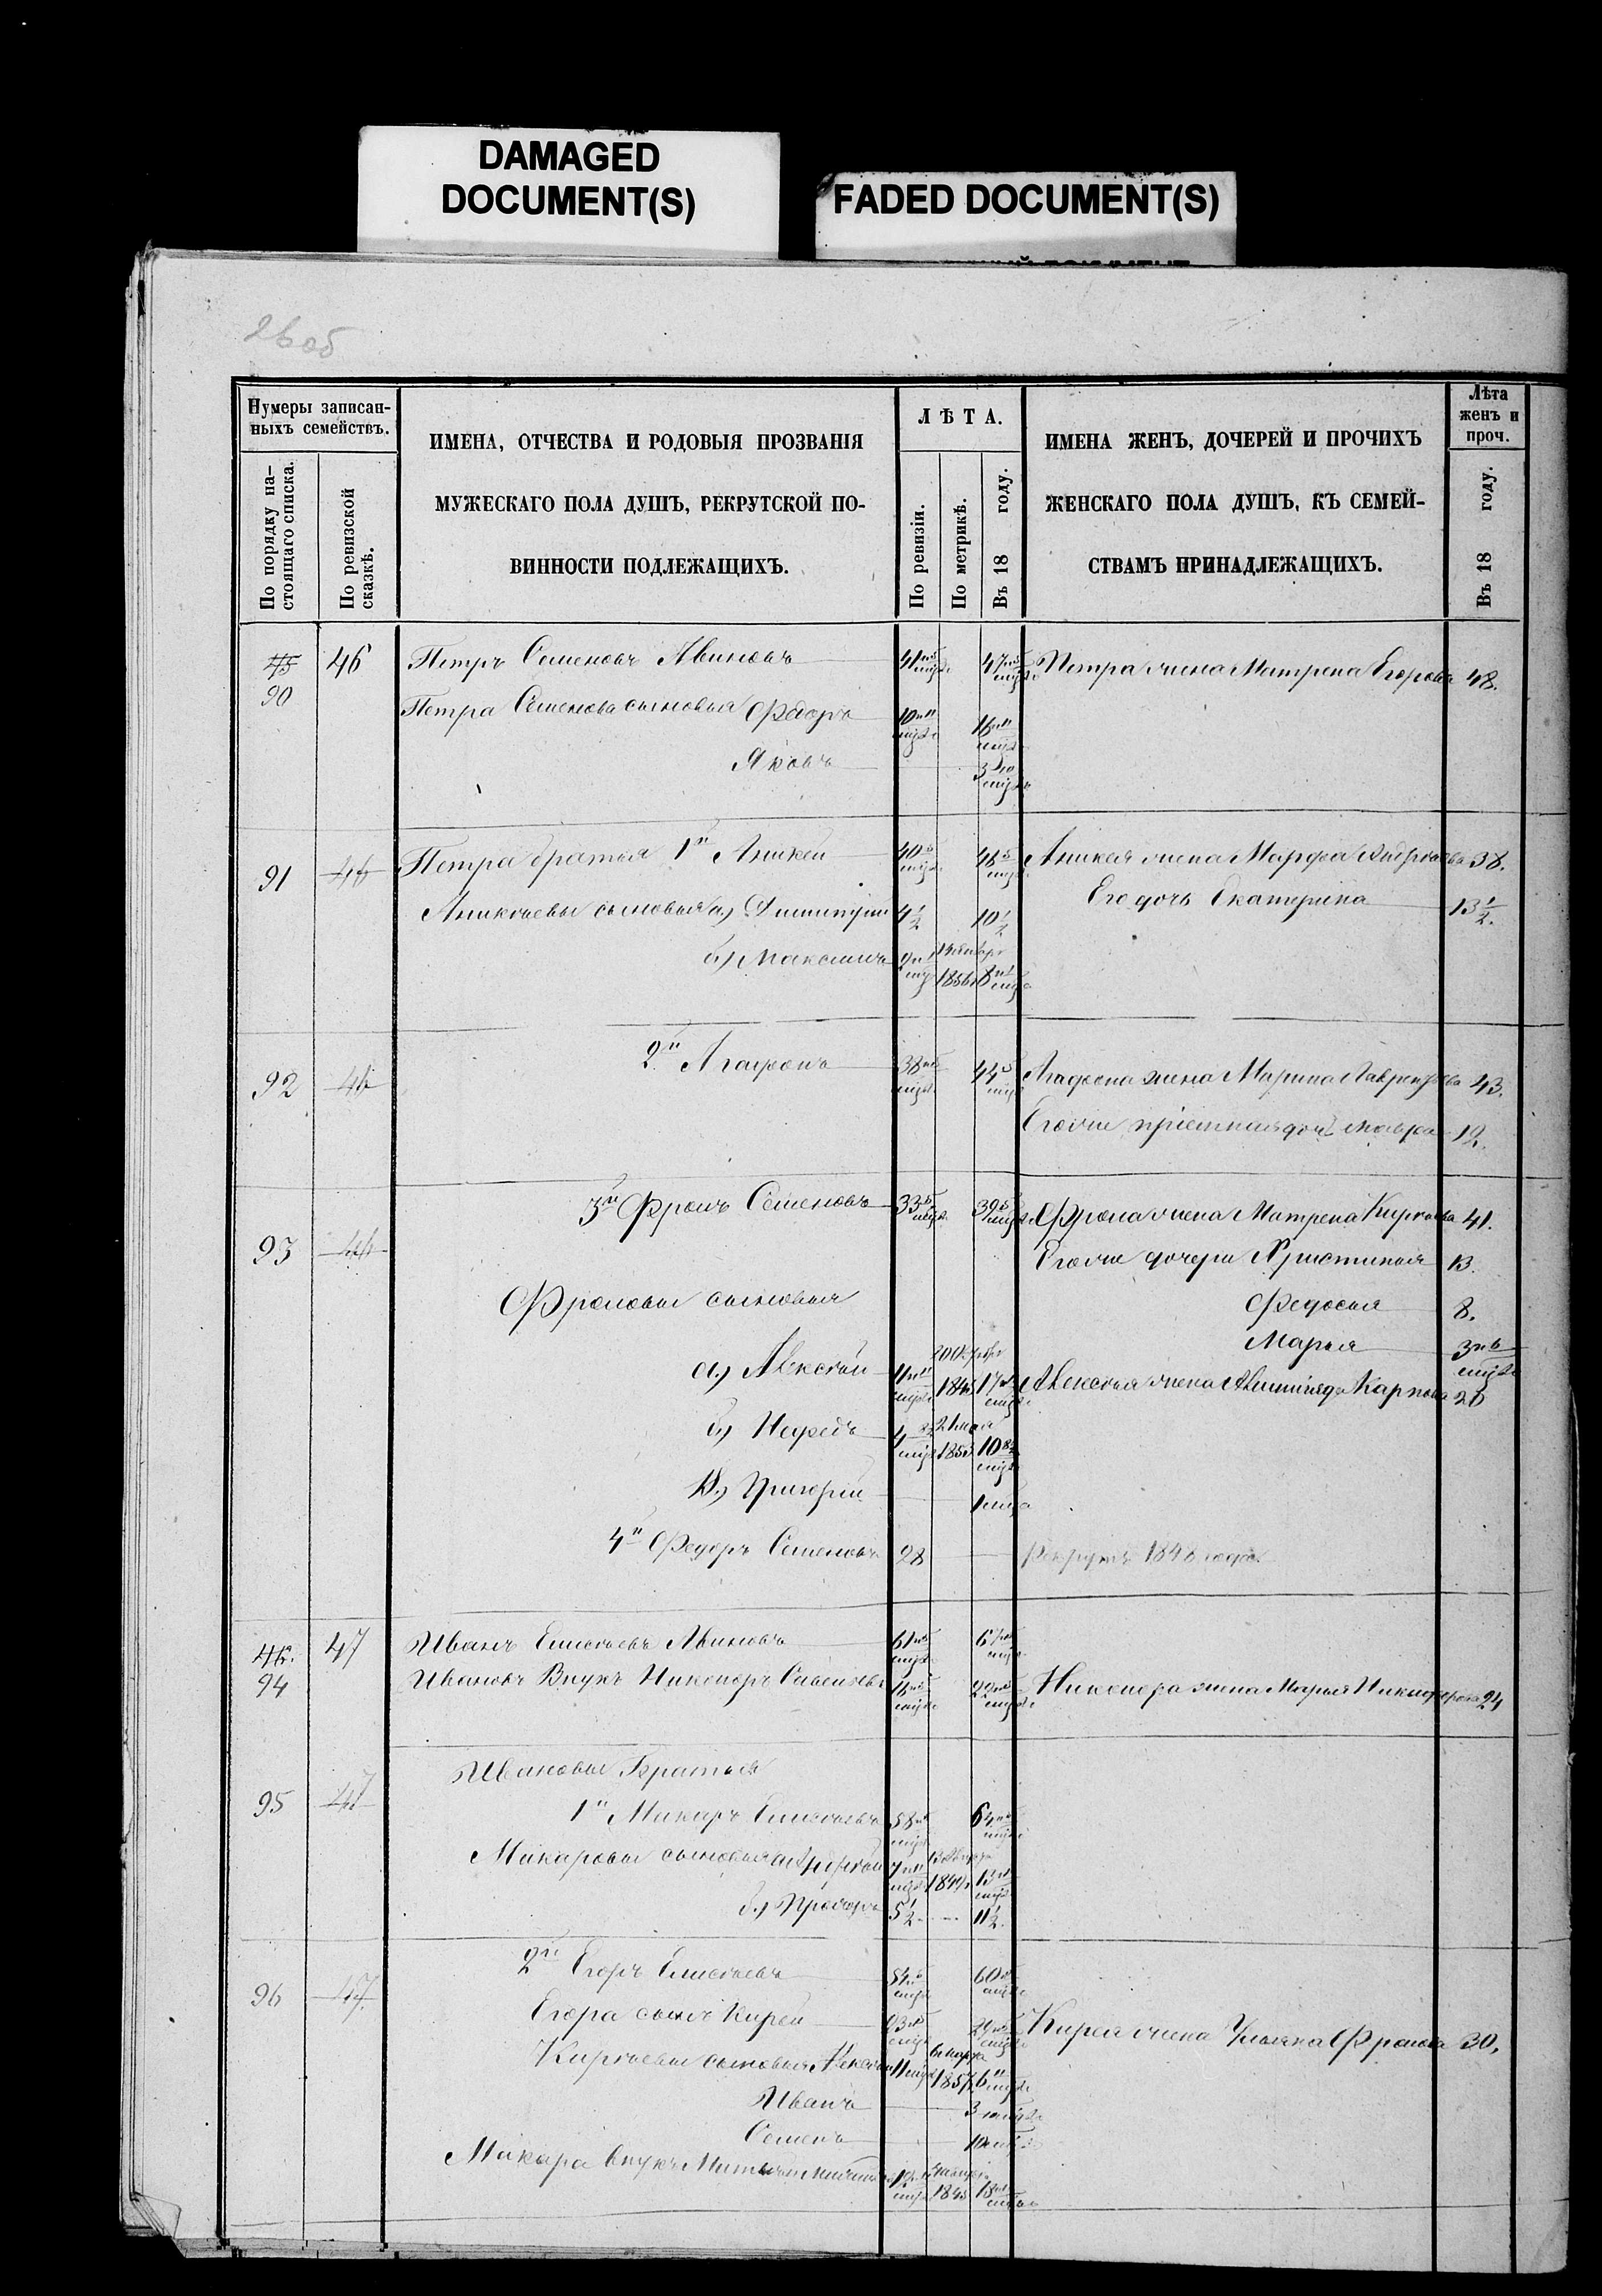 DAMAGED
DOCUMENT(S)
FADED DOCUMENT(S)
26 об
Нумеры записан-
ныхъ семействъ.
По порядку на-
стоящаго списка.
По ревизской
сказкѣ.
ИМЕНА, ОТЧЕСТВА И РОДОВЫЯ ПРОЗВАНІЯ
МУЖЕСКАГО ПОЛА ДУШЪ, РЕКРУТСКОЙ ПО-
ВИННОСТИ ПОДЛЕЖАЩИХЪ.
ЛѢТА.
По ревизіи.
По метрикѣ.
Въ 18 году.
ИМЕНА ЖЕНЪ, ДОЧЕРЕЙ И ПРОЧИХЪ
ЖЕНСКАГО ПОЛА ДУШЪ, КЪ СЕМЕЙ-
СТВАМЪ ПРИНАДЛЕЖАЩИХЪ.
Лѣта
женъ и
проч.
Въ 18 году.
45 46 Петръ Семеновъ 41 47 Петра жена Матрена Егорова 48.
90
Петра Семенова сыновья Федоръ 10 16
Яковъ 3
91 46 Петра братья 1й Аникей 40 46 Аникея жена Марфа 38.
Аникѣевы сыновья а) Дмитрій 4½ 10½ Его дочь Екатерина 13½.
б) Максимъ 1856
92 46 2й Агафонъ 38 44 Агафона жена Марина Лаврентьева 43.
Его же дочь 12.
93 46 3й Фролъ Семеновъ 33 39 Фрола жена Матрена Кирѣева 41.
Его же дочери Христинья 13.
Фроловы сыновья Федосья 8.
Марья 3
а) Алексѣй 11 17 Алексѣя жена Карпова 20
б) Нефедъ 4 21 мая 10
в) Григорій 1
4й Федоръ Семеновъ 28 рекрутъ 1848 года
46. 47 Иванъ Елисѣевъ 61 67
94 Ивановъ Внукъ Никоноръ 16 22 Никонора жена Марья Никифорова 24
95 47 Ивановы Братья
1й Макаръ Елисѣевъ 58 64
Макаровы сыновья 7 13
б) Прохоръ 5½ 11½.
96 47 2й Егоръ Елисѣевъ 54 60
Егора сынъ Кирей 23 29 Кирея жена Ульяна Фролова 30.
Кирѣевы сыновья Алексѣй 11 1857 6
Иванъ 3
Семенъ 10
Макара внукъ 12 1845 18